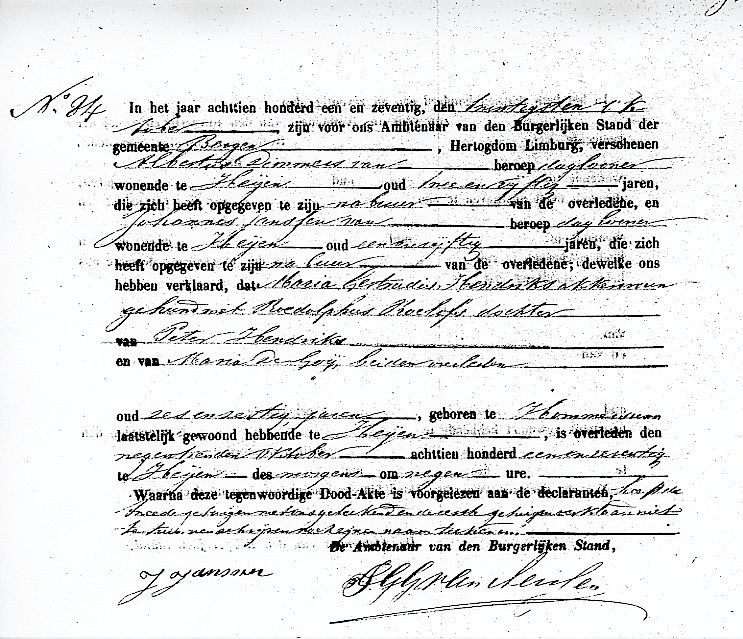 No. 84
In het jaar achttien honderd een en zeventig, den twintigsten Ok
tober zijn voor ons Ambtenaar van den Burgerlijken Stand der
gemeente Bergen, Hertogdom Limburg, verschenen
Albertus Simmers van beroep daglooner
wonende te Heijen oud twee en vijftig jaren,
die zich heeft opgegeven te zijn nabuur van de overledene, en
Johannes Janssen van beroep daglooner
wonende te Heijen oud een en vijftig jaren, die zich
heeft opgegeven te zijn nabuur van de overledene; dewelke ons
hebben verklaard, dat Maria Gertrudis Hendriks
gehuwd met Roedolphus Roelofs dochter
van Peter Hendriks
en van Maria de Goij, beiden overleden
oud zes en zestig jaren, geboren te Hommersum
laatstelijk gewoond hebbende te Heijen, is overleden den
negentienden Oktober achttien honderd een en zeventig
te Heijen des morgens om negen ure.
Waarna deze tegenwoordige Dood-Akte is voorgelezen aan de declaranten,
tweede getuigen met ons geteekend en de eerste getuige verklaard niet
te schrijven
De Ambtenaar van den Burgerlijken Stand,
J Janssen